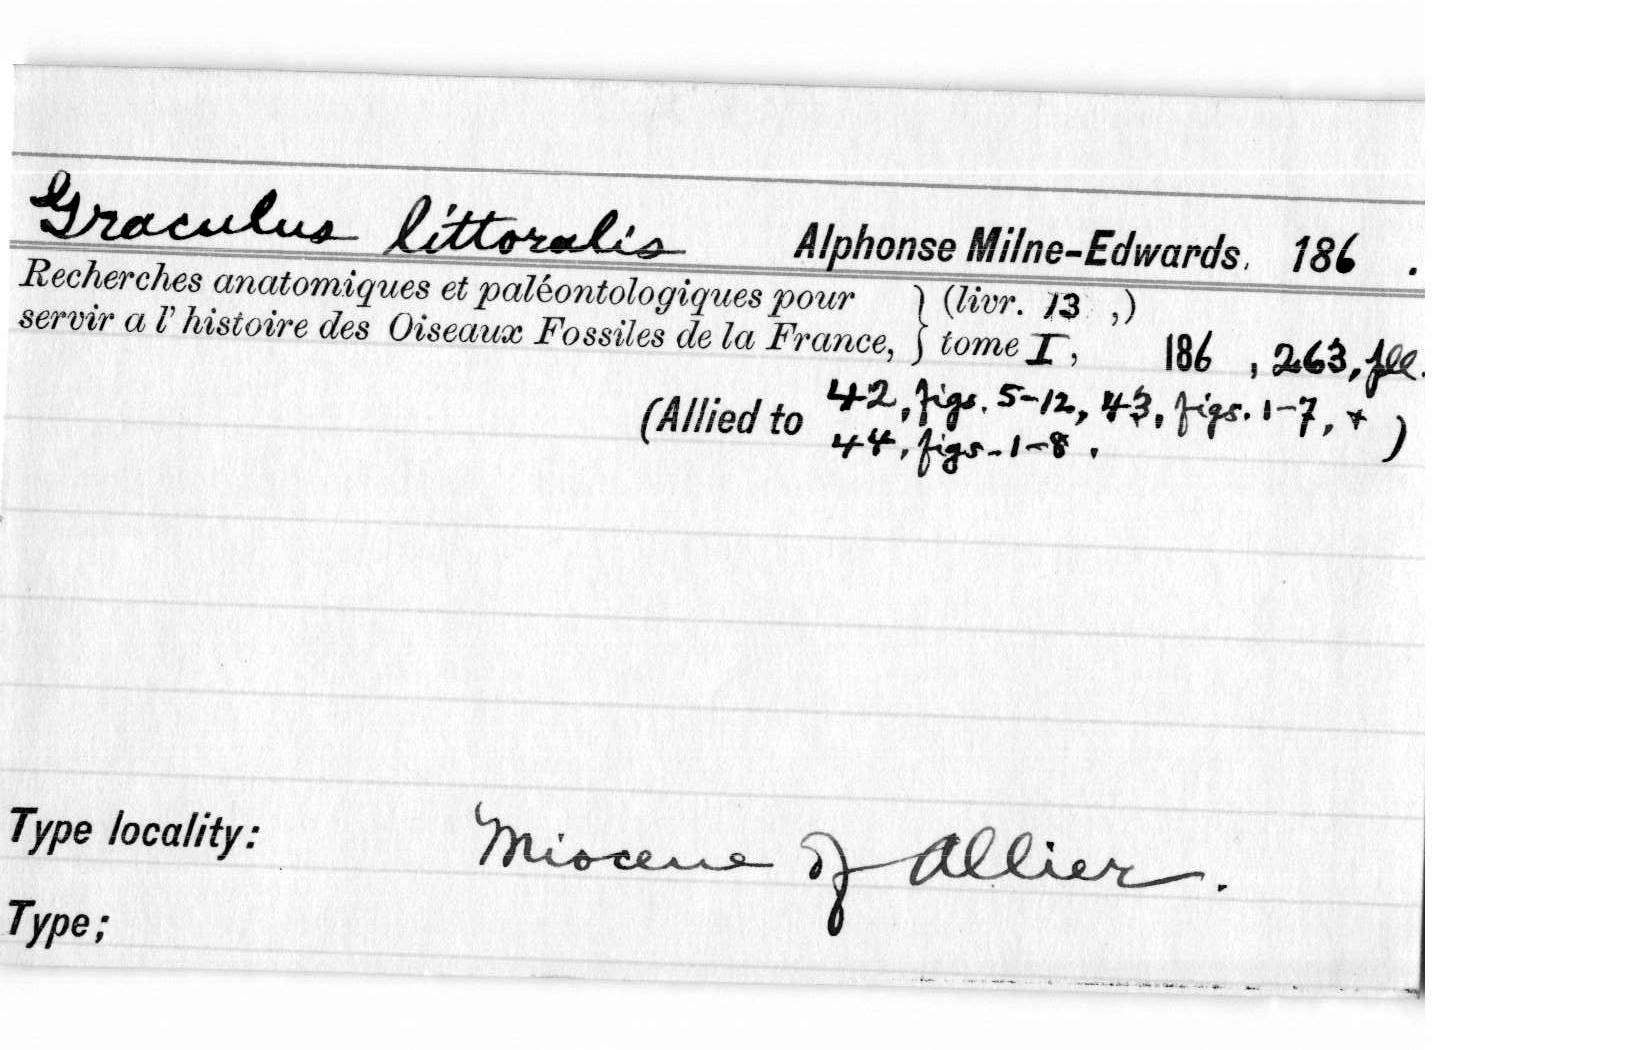 Graculus littoralis Alphonse Milne-Edwards. 186 .
Recherches anatomiques et paléontologiques pour } (livr. 13 ,)
servir a l'histoire des Oiseaux Fossiles de la France, } tome I, 186 , 263, pll.
(Allied to 42, figs. 5-12, 43, figs. 1-7, + )
44, figs. 1-8.
Type locality: Miocene of Allier.
Type;